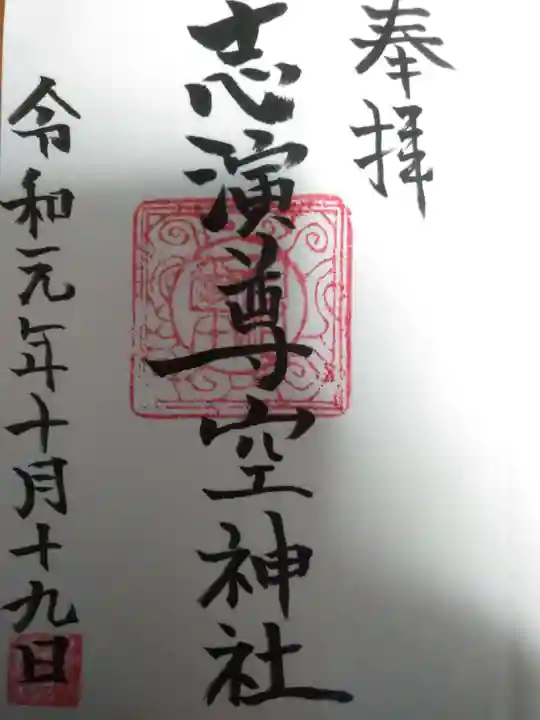 奉拝
志演尊空神社
令和元年十月十九日